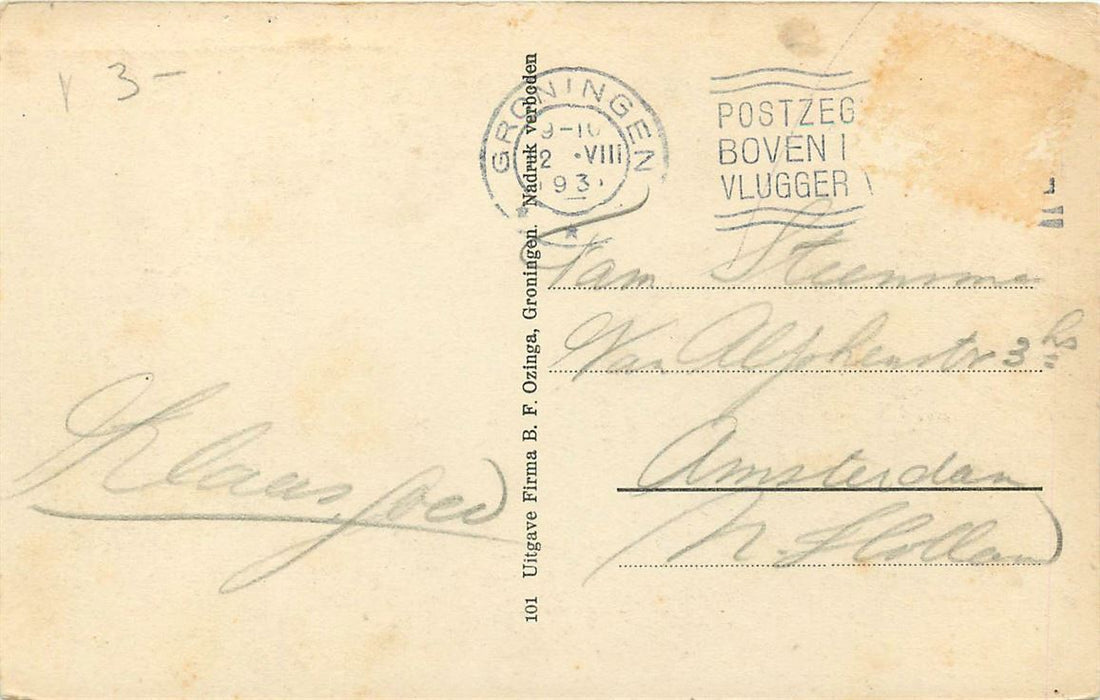 3-
GRONINGEN
9-10
2 VIII
193
POSTZEG
BOVEN
VLUGGER
101 Uitgave Firma B. F. Ozinga, Groningen. Nadruk verboden
Fam.
Van Alphenstr 3 hs
Amsterdam
N. Holland
Klaas.